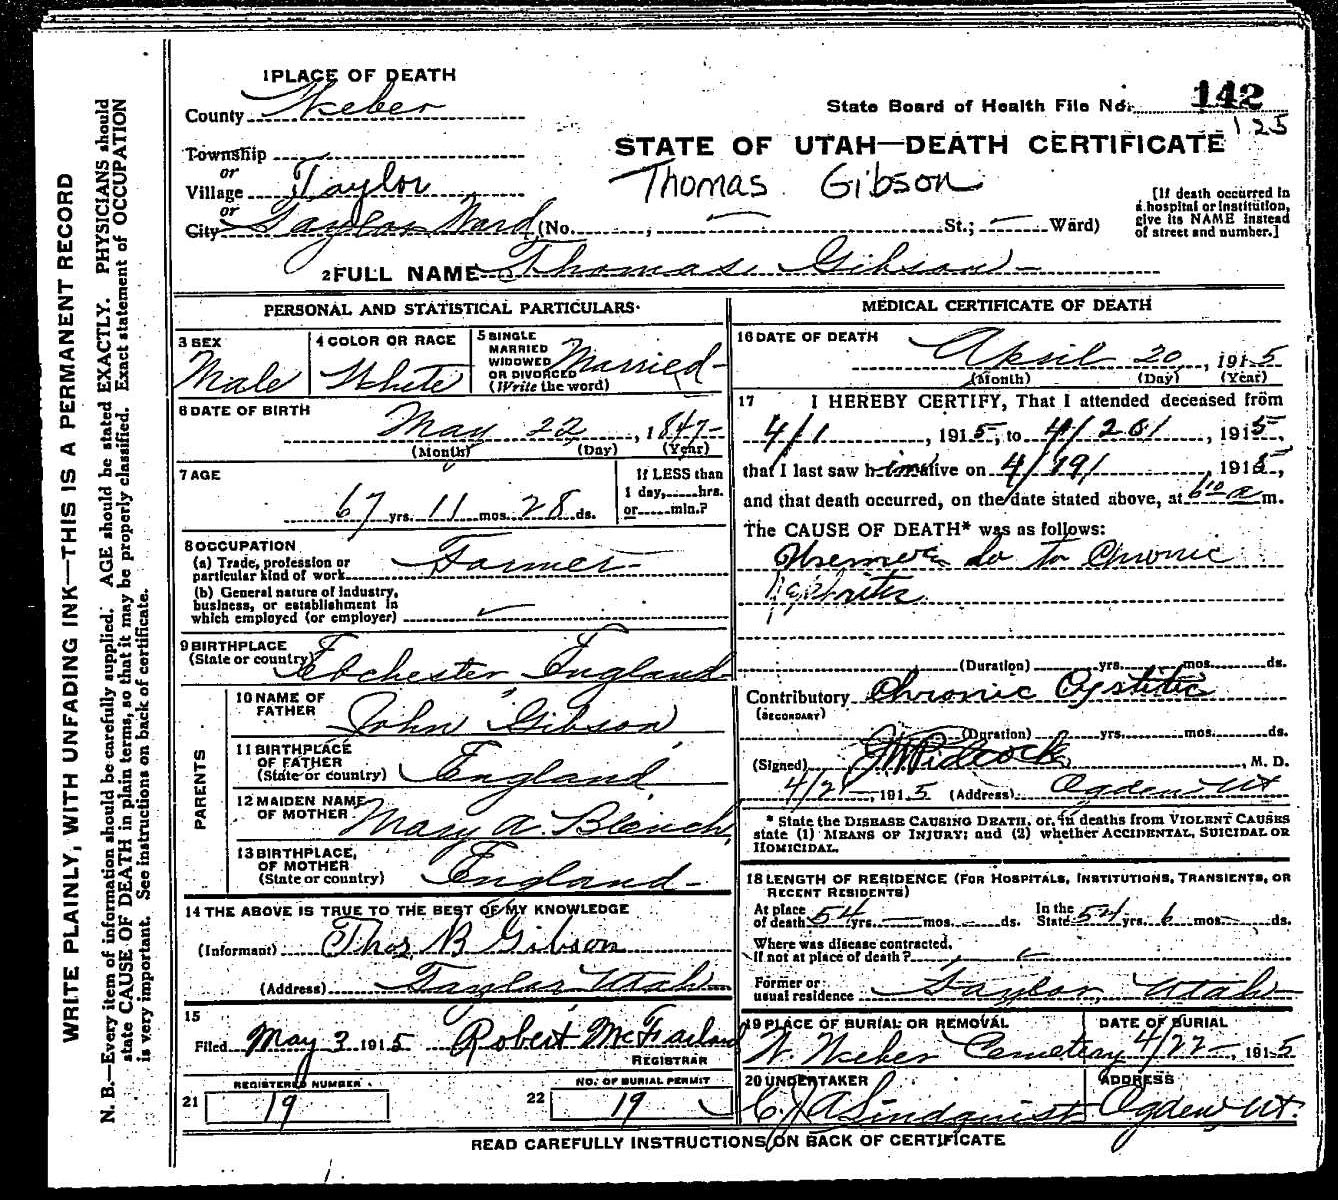 WRITE PLAINLY, WITH UNFADING INK—THIS IS A PERMANENT RECORD
N. B.—Every item of information should be carefully supplied. AGE should be stated EXACTLY. PHYSICIANS should
state CAUSE OF DEATH in plain terms, so that it may be properly classified. Exact statement of OCCUPATION
is very important. See instructions on back of certificate.
1 PLACE OF DEATH
County Weber
State Board of Health File No. 142
125
Township
STATE OF UTAH—DEATH CERTIFICATE
or
Village Taylor
Thomas Gibson
or
City Taylor Ward (No. — , St.; — Ward)
[If death occurred in
a hospital or institution,
give its NAME instead
of street and number.]
2 FULL NAME Thomas Gibson
PERSONAL AND STATISTICAL PARTICULARS
3 SEX
Male
4 COLOR OR RACE
White
5 SINGLE
MARRIED
WIDOWED
OR DIVORCED
(Write the word)
Married
6 DATE OF BIRTH
May 22, 1847
(Month) (Day) (Year)
7 AGE
67 yrs. 11 mos. 28 ds.
If LESS than
1 day, hrs.
or min.?
8 OCCUPATION
(a) Trade, profession or
particular kind of work Farmer
(b) General nature of industry,
business, or establishment in
which employed (or employer)
9 BIRTHPLACE
(State or country) Ebchester England
PARENTS
10 NAME OF
FATHER John Gibson
11 BIRTHPLACE
OF FATHER
(State or country) England
12 MAIDEN NAME
OF MOTHER Mary A. Blench
13 BIRTHPLACE
OF MOTHER
(State or country) England
14 THE ABOVE IS TRUE TO THE BEST OF MY KNOWLEDGE
(Informant) Thos B Gibson
(Address) Taylor Utah
15
Filed May 3 1915 Robert McFarland
REGISTRAR
REGISTERED NUMBER
21 19
NO. OF BURIAL PERMIT
22 19
MEDICAL CERTIFICATE OF DEATH
16 DATE OF DEATH
April 20, 1915
(Month) (Day) (Year)
17 I HEREBY CERTIFY, That I attended deceased from
4/1, 1915, to 4/20/, 1915,
that I last saw him alive on 4/19/, 1915,
and that death occurred, on the date stated above, at 6 10 a m.
The CAUSE OF DEATH* was as follows:
Uremia du to Chronic
Nephritis
(Duration) yrs. mos. ds.
Contributory Chronic Cystitis
(SECONDARY)
(Duration) yrs. mos. ds.
(Signed) J W Pidcock, M. D.
4/21 1915 (Address) Ogden Ut
* State the DISEASE CAUSING DEATH, or, in deaths from VIOLENT CAUSES
state (1) MEANS OF INJURY; and (2) whether ACCIDENTAL, SUICIDAL OR
HOMICIDAL.
18 LENGTH OF RESIDENCE (FOR HOSPITALS, INSTITUTIONS, TRANSIENTS, OR
RECENT RESIDENTS)
At place
of death 54 yrs. — mos. — ds.
In the
State 54 yrs. 6 mos. — ds.
Where was disease contracted,
if not at place of death?
Former or
usual residence Taylor, Utah
19 PLACE OF BURIAL OR REMOVAL
W. Weber Cemetery
DATE OF BURIAL
4/22, 1915
20 UNDERTAKER
C. J. A. Lindquist
ADDRESS
Ogden Ut.
READ CAREFULLY INSTRUCTIONS ON BACK OF CERTIFICATE